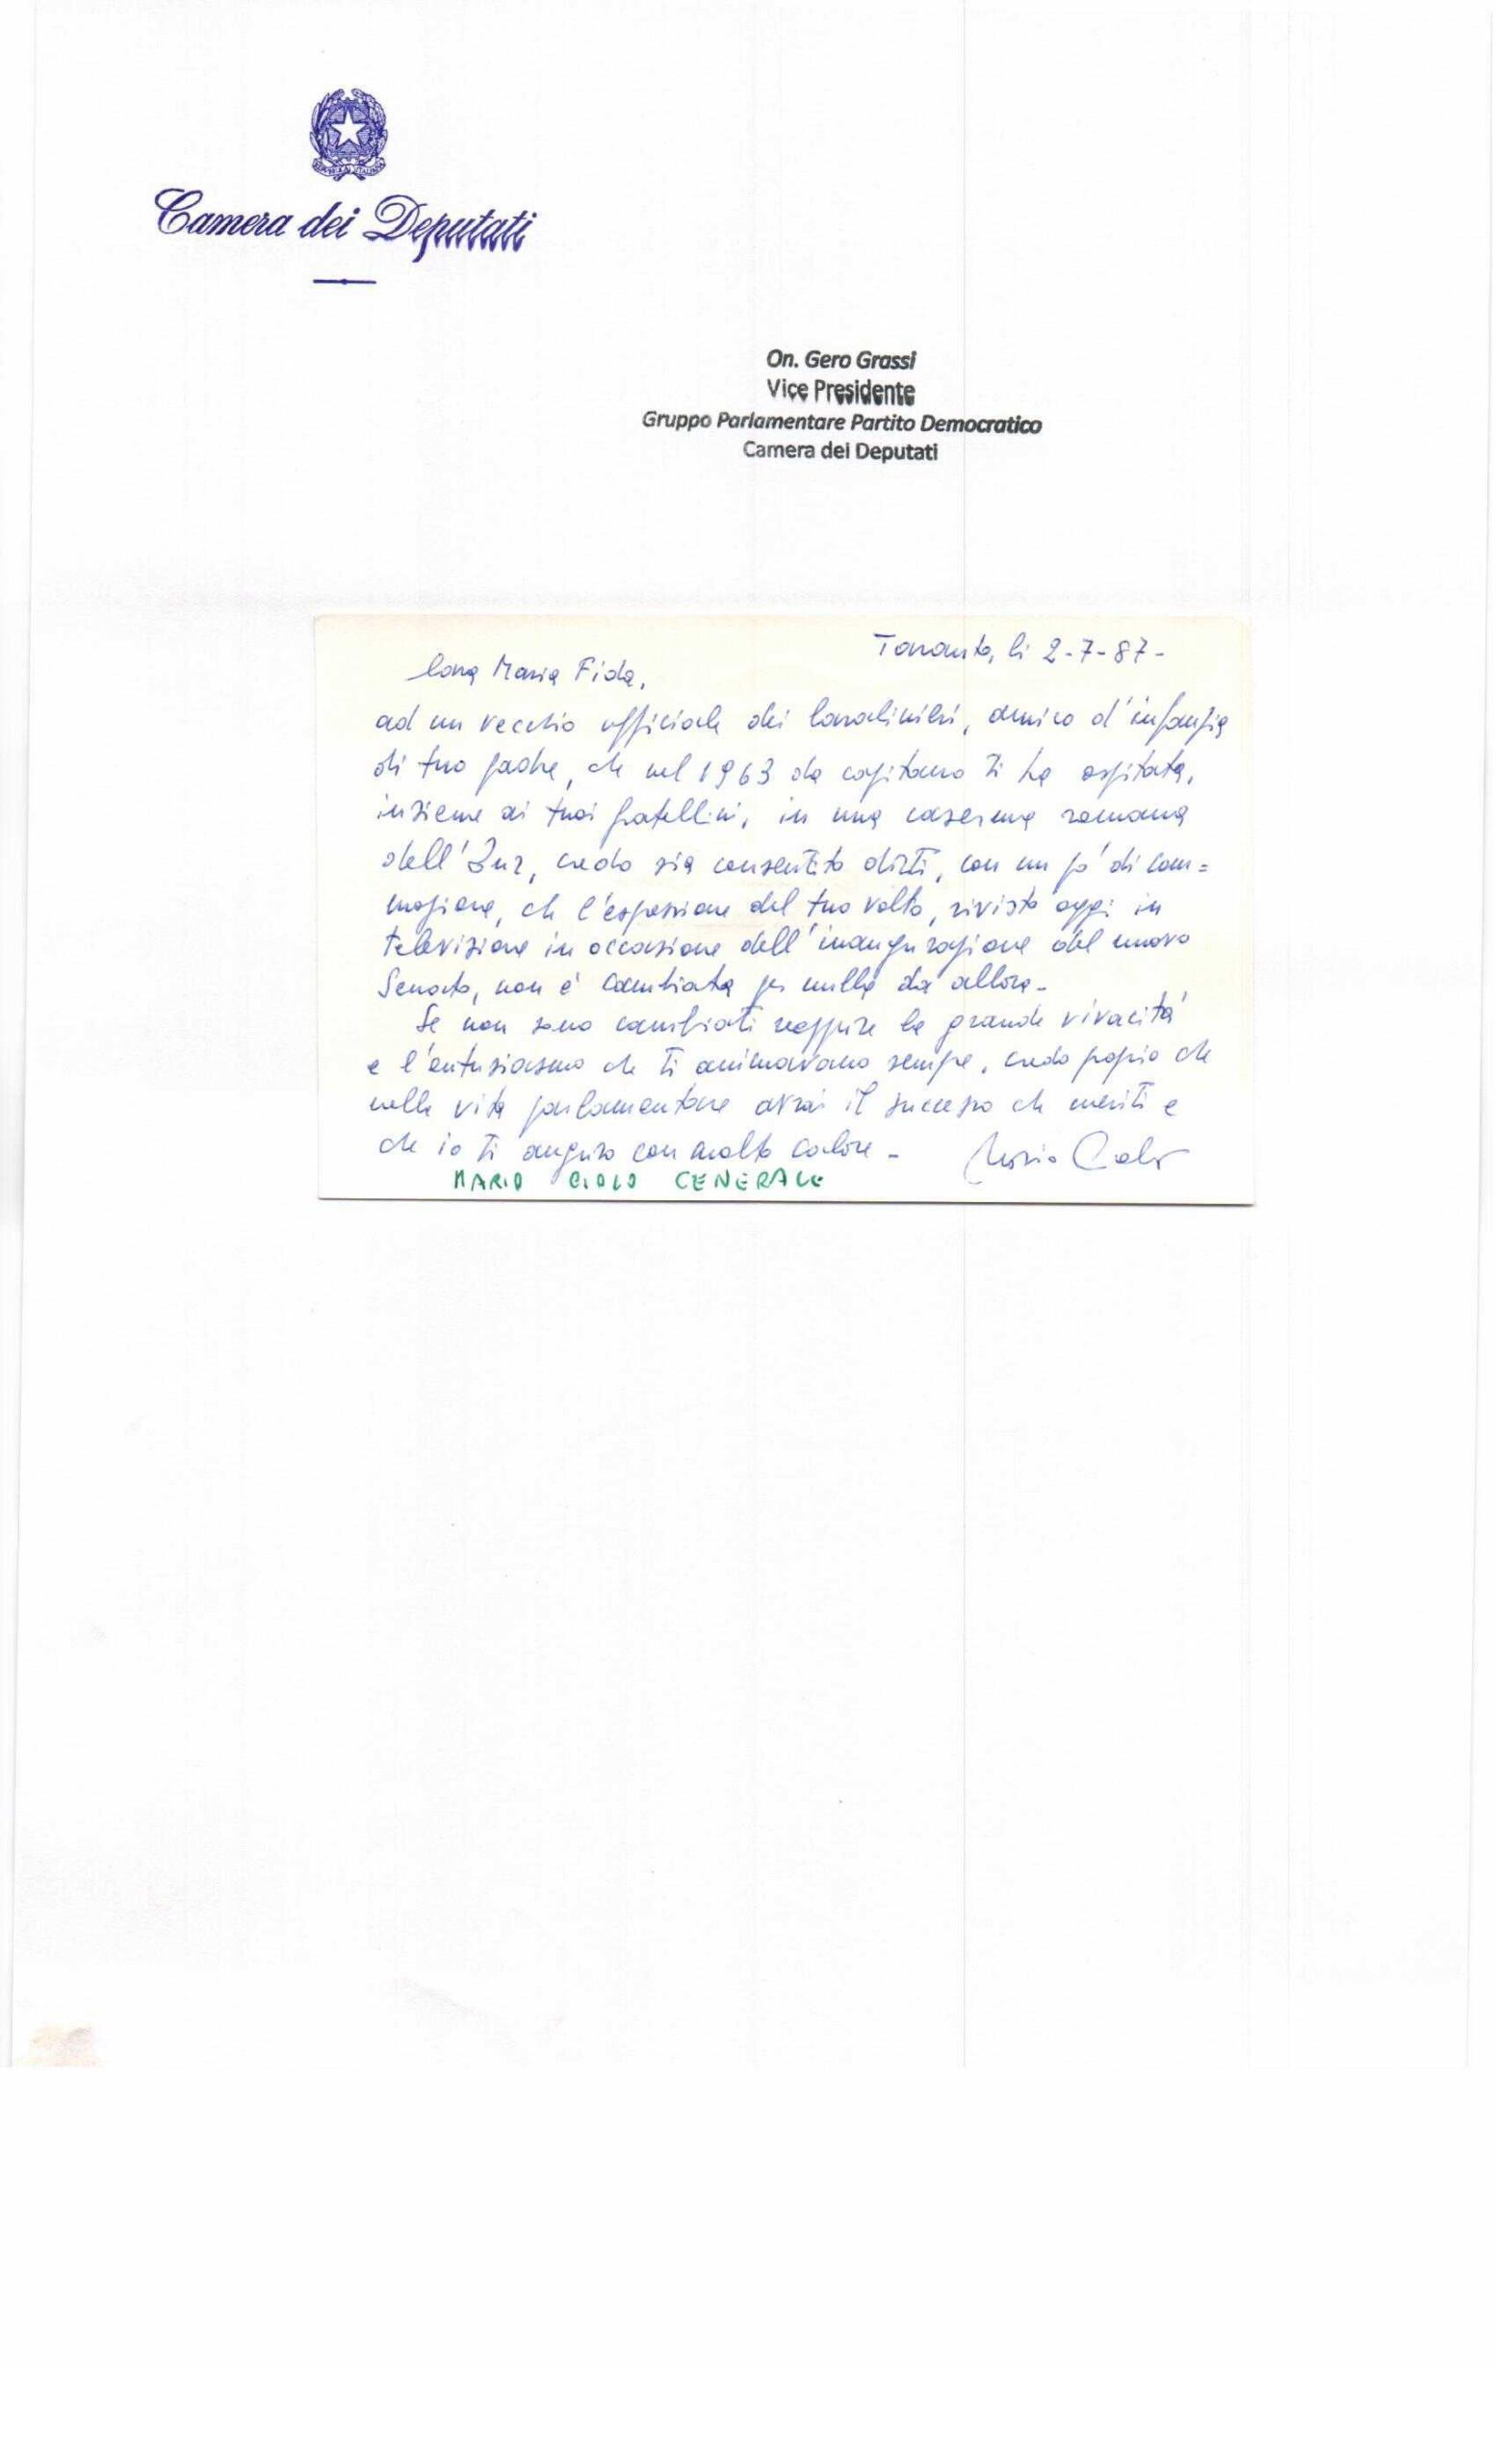 REPUBBLICA ITALIANA
Camera dei Deputati
On. Gero Grassi
Vice Presidente
Gruppo Parlamentare Partito Democratico
Camera dei Deputati
Taranto, li 2-7-87-
Cara Maria Fida,
ad un vecchio ufficiale dei Carabinieri, amico d'infanzia
di tuo padre, che nel 1963 da capitano ti ha ospitata,
insieme ai tuoi fratellini, in una caserma romana
dell'Eur, credo sia consentito dirti, con un pò di com=
mozione, che l'espressione del tuo volto, rivisto oggi in
televisione in occasione dell'inaugurazione del nuovo
Senato, non è cambiata per nulla da allora-
Se non sono cambiati neppure la grande vivacità
e l'entusiasmo che ti animavano sempre, credo proprio che
nella vita parlamentare avrai il successo che meriti e
che io ti auguro con molto calore-
Mario
MARIO GENERALE